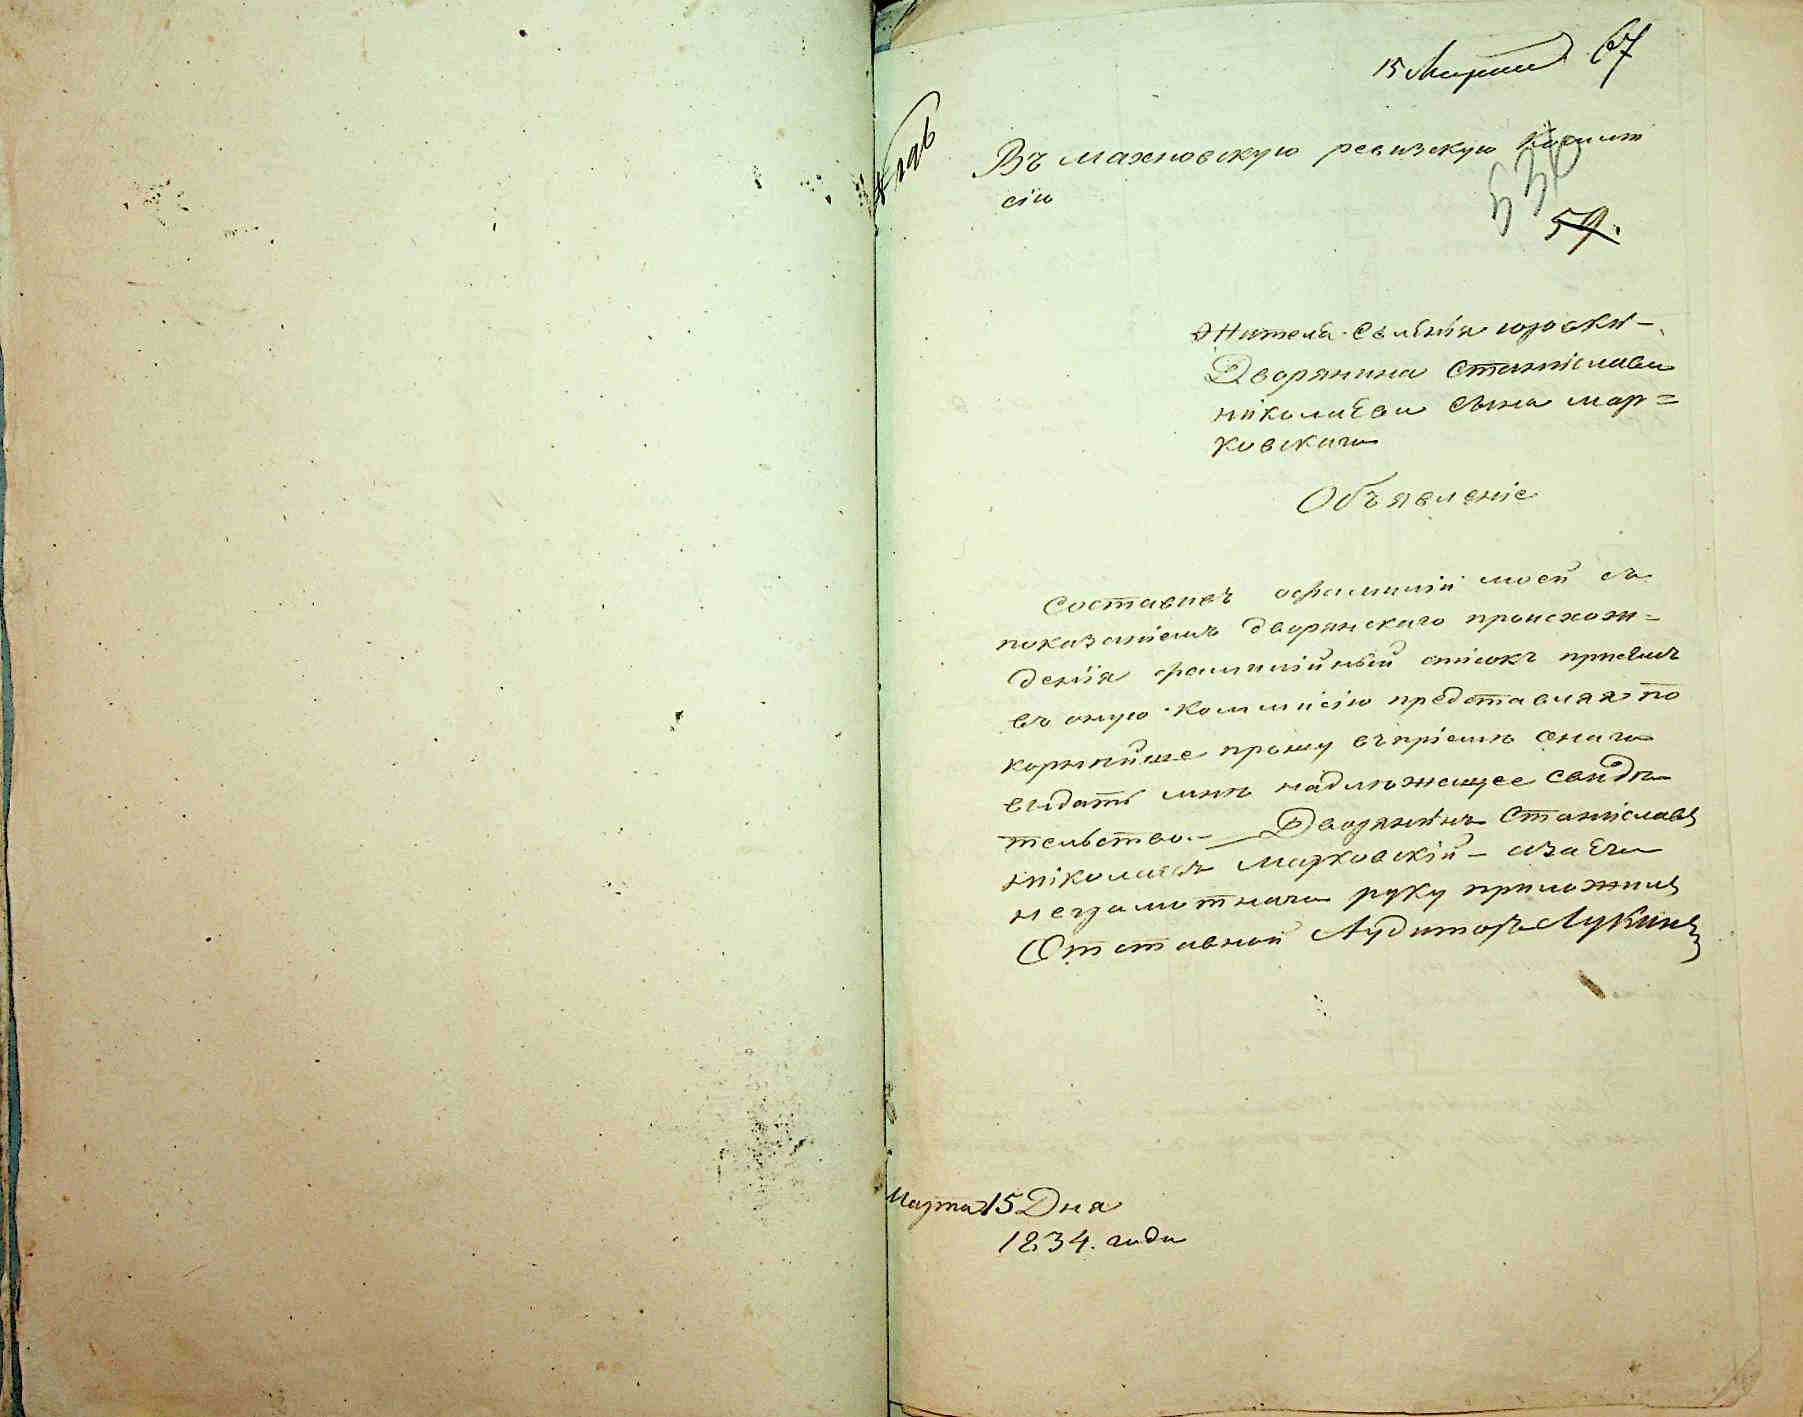 15 Марта 67
Въ махновскую ревизскую Комми
сiю
536
59.
Жителя селенiя юровки –
Дворянина Станiслава
нiколаева сына мар=
ковскаго
Объявленiе
Составивъ офамилiи моей съ
показанiемъ дворянского происхож=
денiя фамилiйный списокъ приемъ
въ оную коммисiю представляя по
корнейше прошу въпрiемѣ онаго
выдать мнѣ надлѣжащее свидѣ
тельство. – Дворянинъ Станiславъ
нiколаевъ Марковскiй – азаего
неграмотнаго руку приложилъ
Отставной Аудиторъ Лукинъ
Марта 15 Дня
1834. года